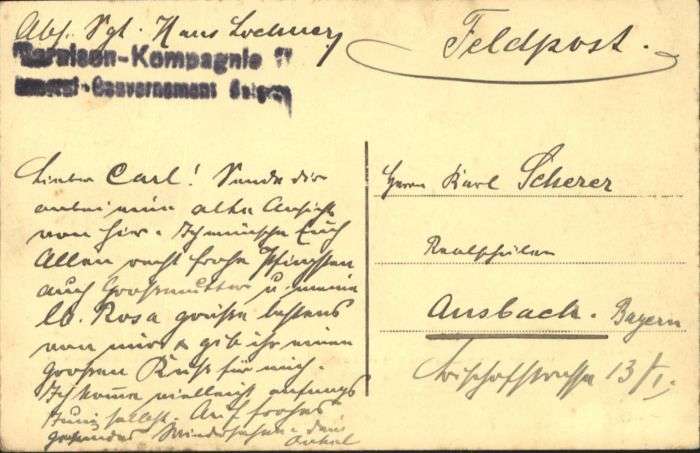 Abs. Sgt. Hans Lochner
Garnison-Kompagnie
General-Gouvernement Belgien
Feldpost.
Lieber Carl! Sende dir
anbei eine alte Ansicht
von hier. Ich wünsche Euch
Allen recht frohe Pfingsten
auch Grossmutter u. meine
lb. Rosa grüße bestens
von mir u. gib ihr einen
grossen Kuss für mich.
Ich komme vielleicht anfangs
Juni selbst. Auf frohes
gesundes Wiedersehen dein
Onkel
Herrn Karl Scherer
Realschüler
Ansbach. Bayern
Bischofstrasse 13/I.